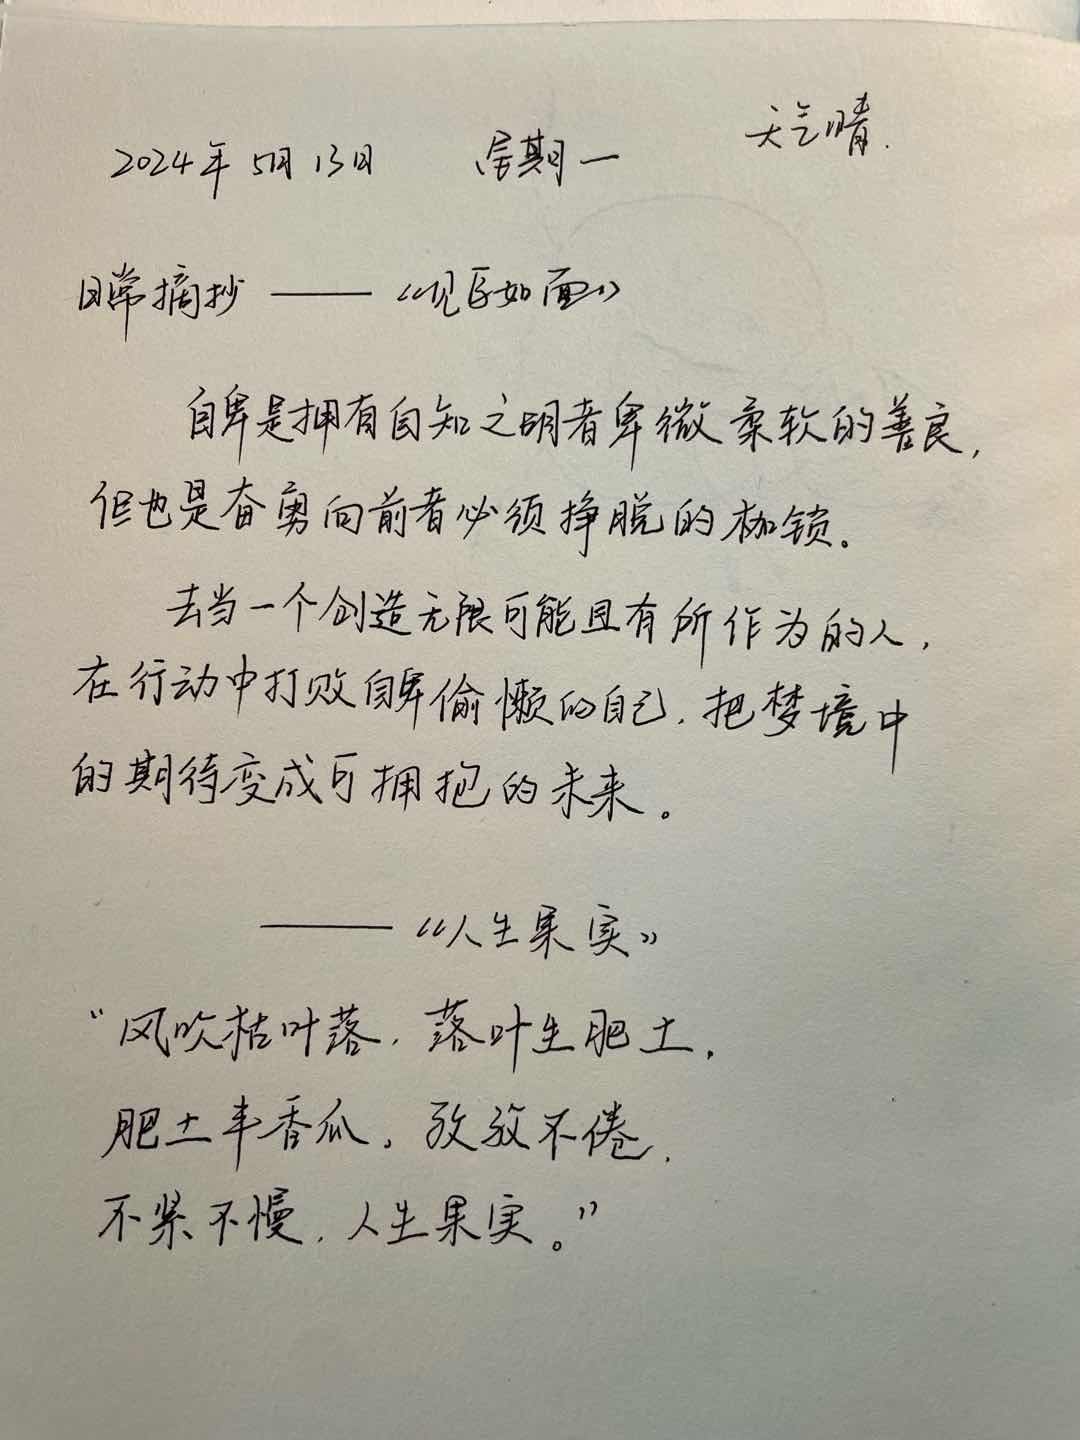 2024年5月13日 星期一 天气晴.
日常摘抄 ——《见字如面》
自卑是拥有自知之明者卑微柔软的善良,
但也是奋勇向前者必须挣脱的枷锁。
去当一个创造无限可能且有所作为的人,
在行动中打败自卑偷懒的自己,把梦境中
的期待变成可拥抱的未来。
——《人生果实》
“风吹枯叶落,落叶生肥土,
肥土丰香瓜,孜孜不倦,
不紧不慢,人生果实。”